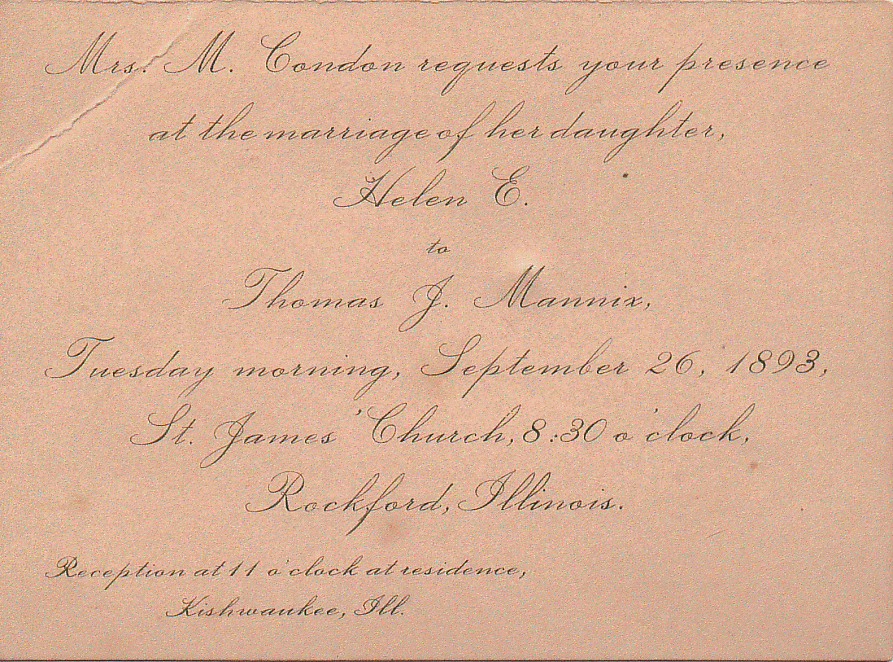 Mrs. M. Condon requests your presence
at the marriage of her daughter,
Helen E.
to
Thomas J. Mannix,
Tuesday morning, September 26, 1893,
St. James' Church, 8:30 o'clock,
Rockford, Illinois.
Reception at 11 o'clock at residence,
Kishwaukee, Ill.